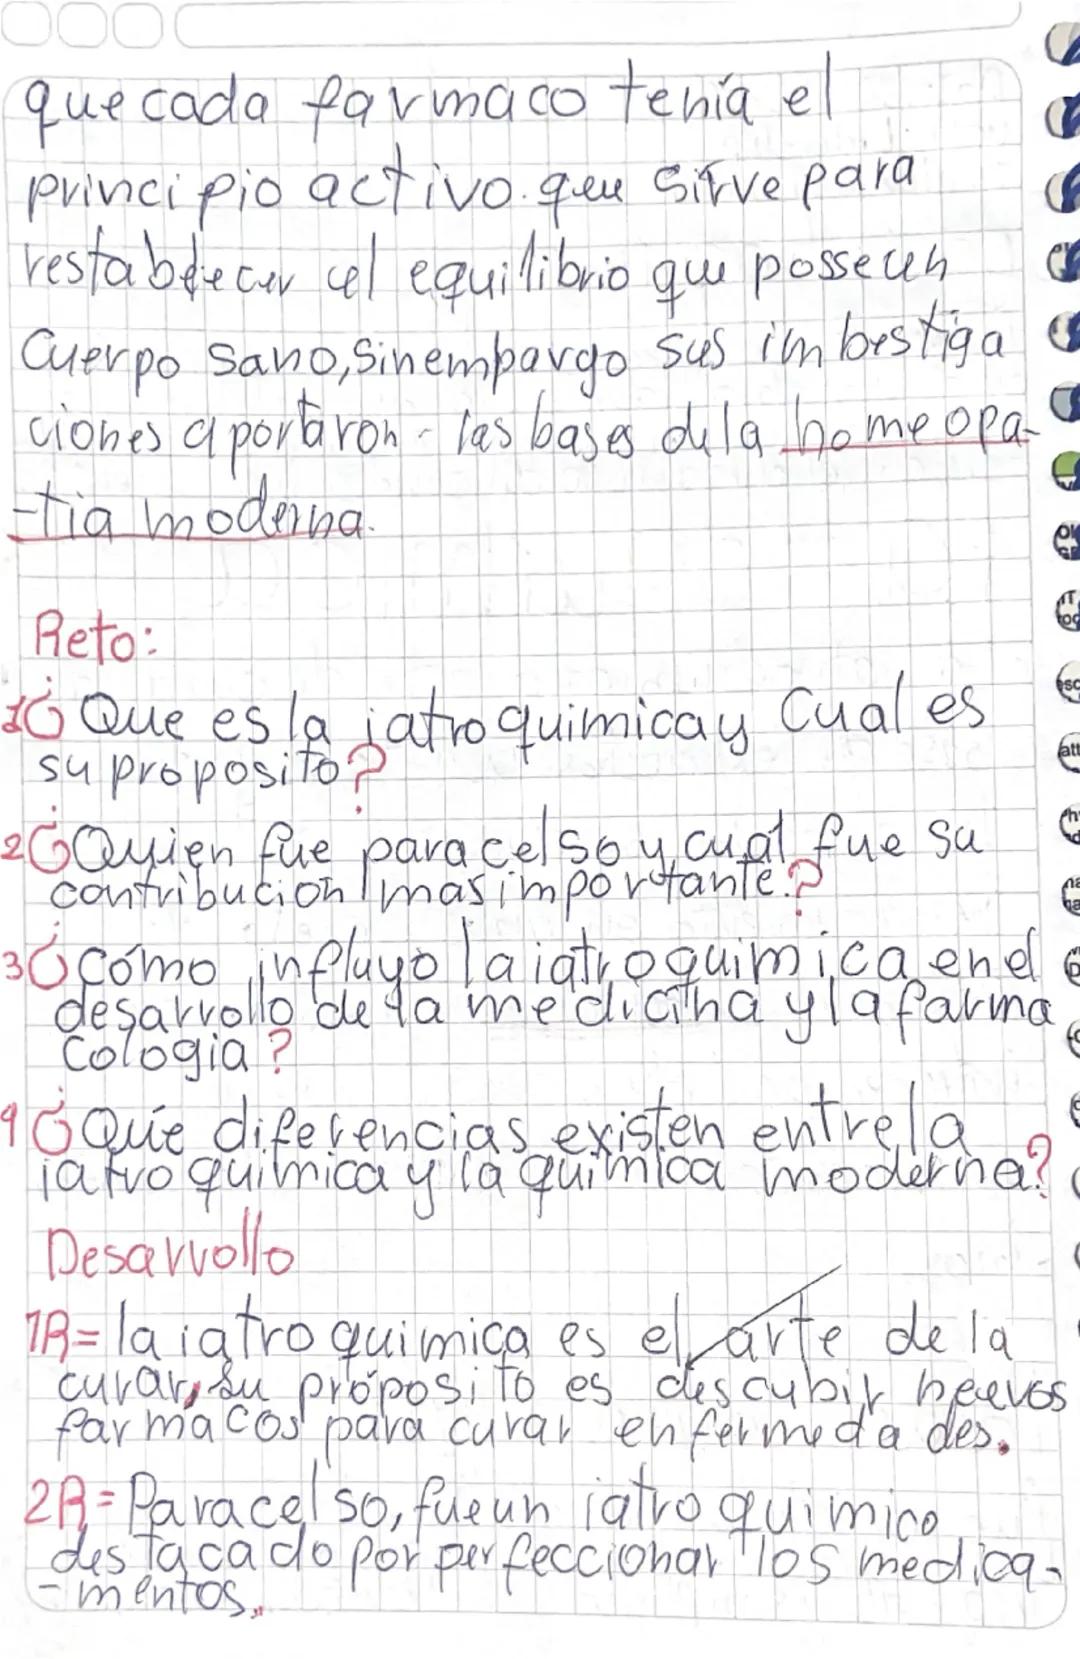 que cada farmaco tenía el
principio activo. qeu sirve para
restablecer el equilibrio que posse un
Cuerpo sano, sin embargo sus imbestiga
ciones aportaron - las bases de la homeopa-
-tia moderna.
Reto:
1¿ Que es la iatroquimica y Cual es
su proposito?
2¿Quien fue paracelso y cual fue su
contribución mas importante.?
3¿cómo influyo la iatroquimica en el
desarrollo de la medicina y la farma
cologia?
4¿Qué diferencias existen entre la
iatroquimica y la quimica moderna?
Desarrollo
1R= la iatroquimica es el arte de la
curar, su próposito es descubir neevos
farmacos para curar enfermedades.
2R= Paracelso, fue un iatroquimico
destacado por perfeccionar los medica-
-mentos.